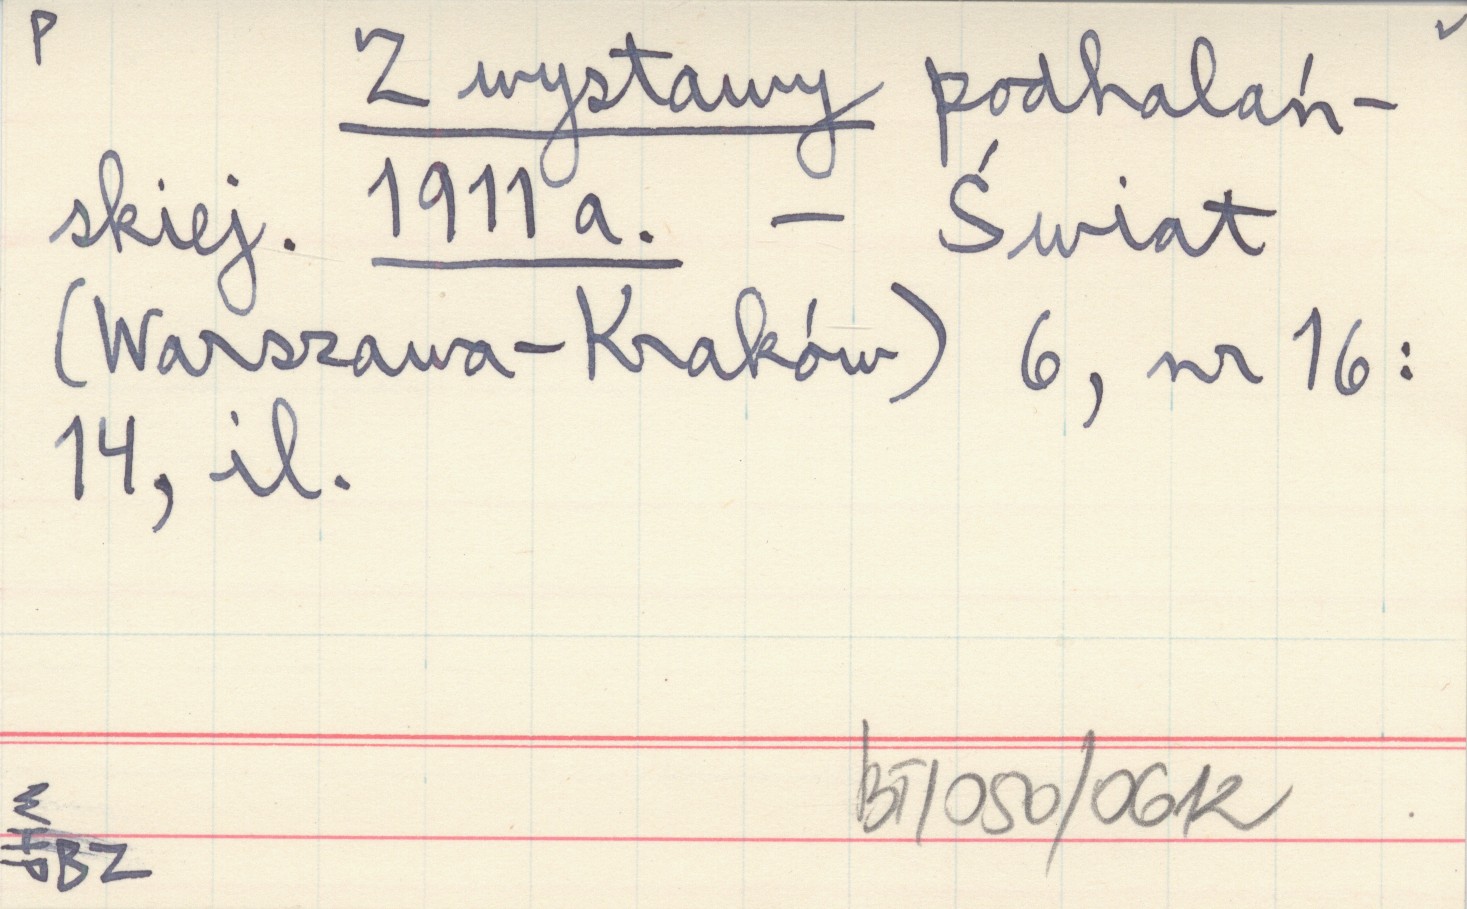 P
Z wystawy podhalań-
skiej. 1911 a. - Świat
(Warszawa-Kraków) 6, nr 16:
14, il.
BT/050/0612
BZ